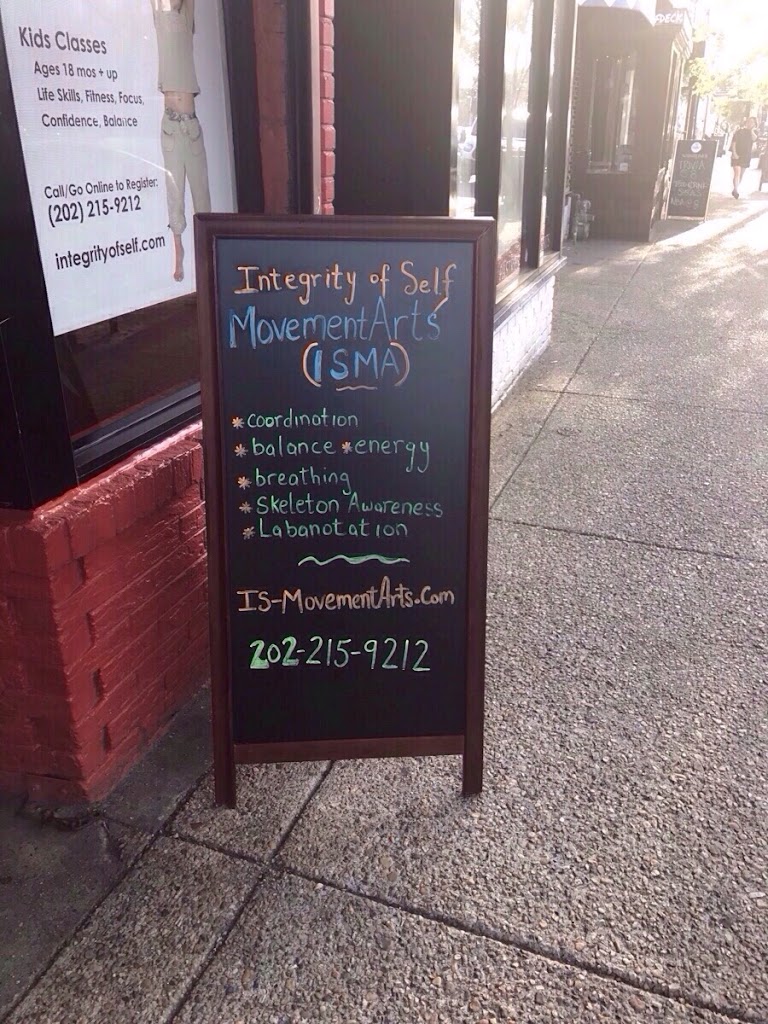 Kids Classes
Ages 18 mos + up
Life Skills, Fitness, Focus,
Confidence, Balance
Call/Go Online to Register:
(202) 215-9212
integrityofself.com
Integrity of Self
MovementArts
(ISMA)
*coordination
*balance *energy
*breathing
*Skeleton Awareness
*Labanotation
IS-MovementArts.Com
202-215-9212